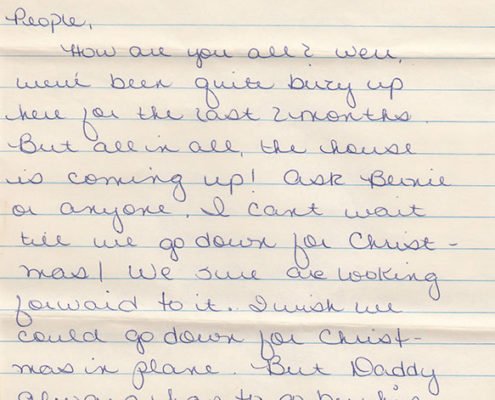 People,
How are you all? Well,
we've been quite bizy up
here for the last 2 months.
But all in all, the house
is coming up! Ask Bernie
or anyone. I cant wait
till we go down for Christ-
mas! We sure are looking
forward to it. I wish we
could go down for Christ-
mas in plane. But Daddy
always has to go